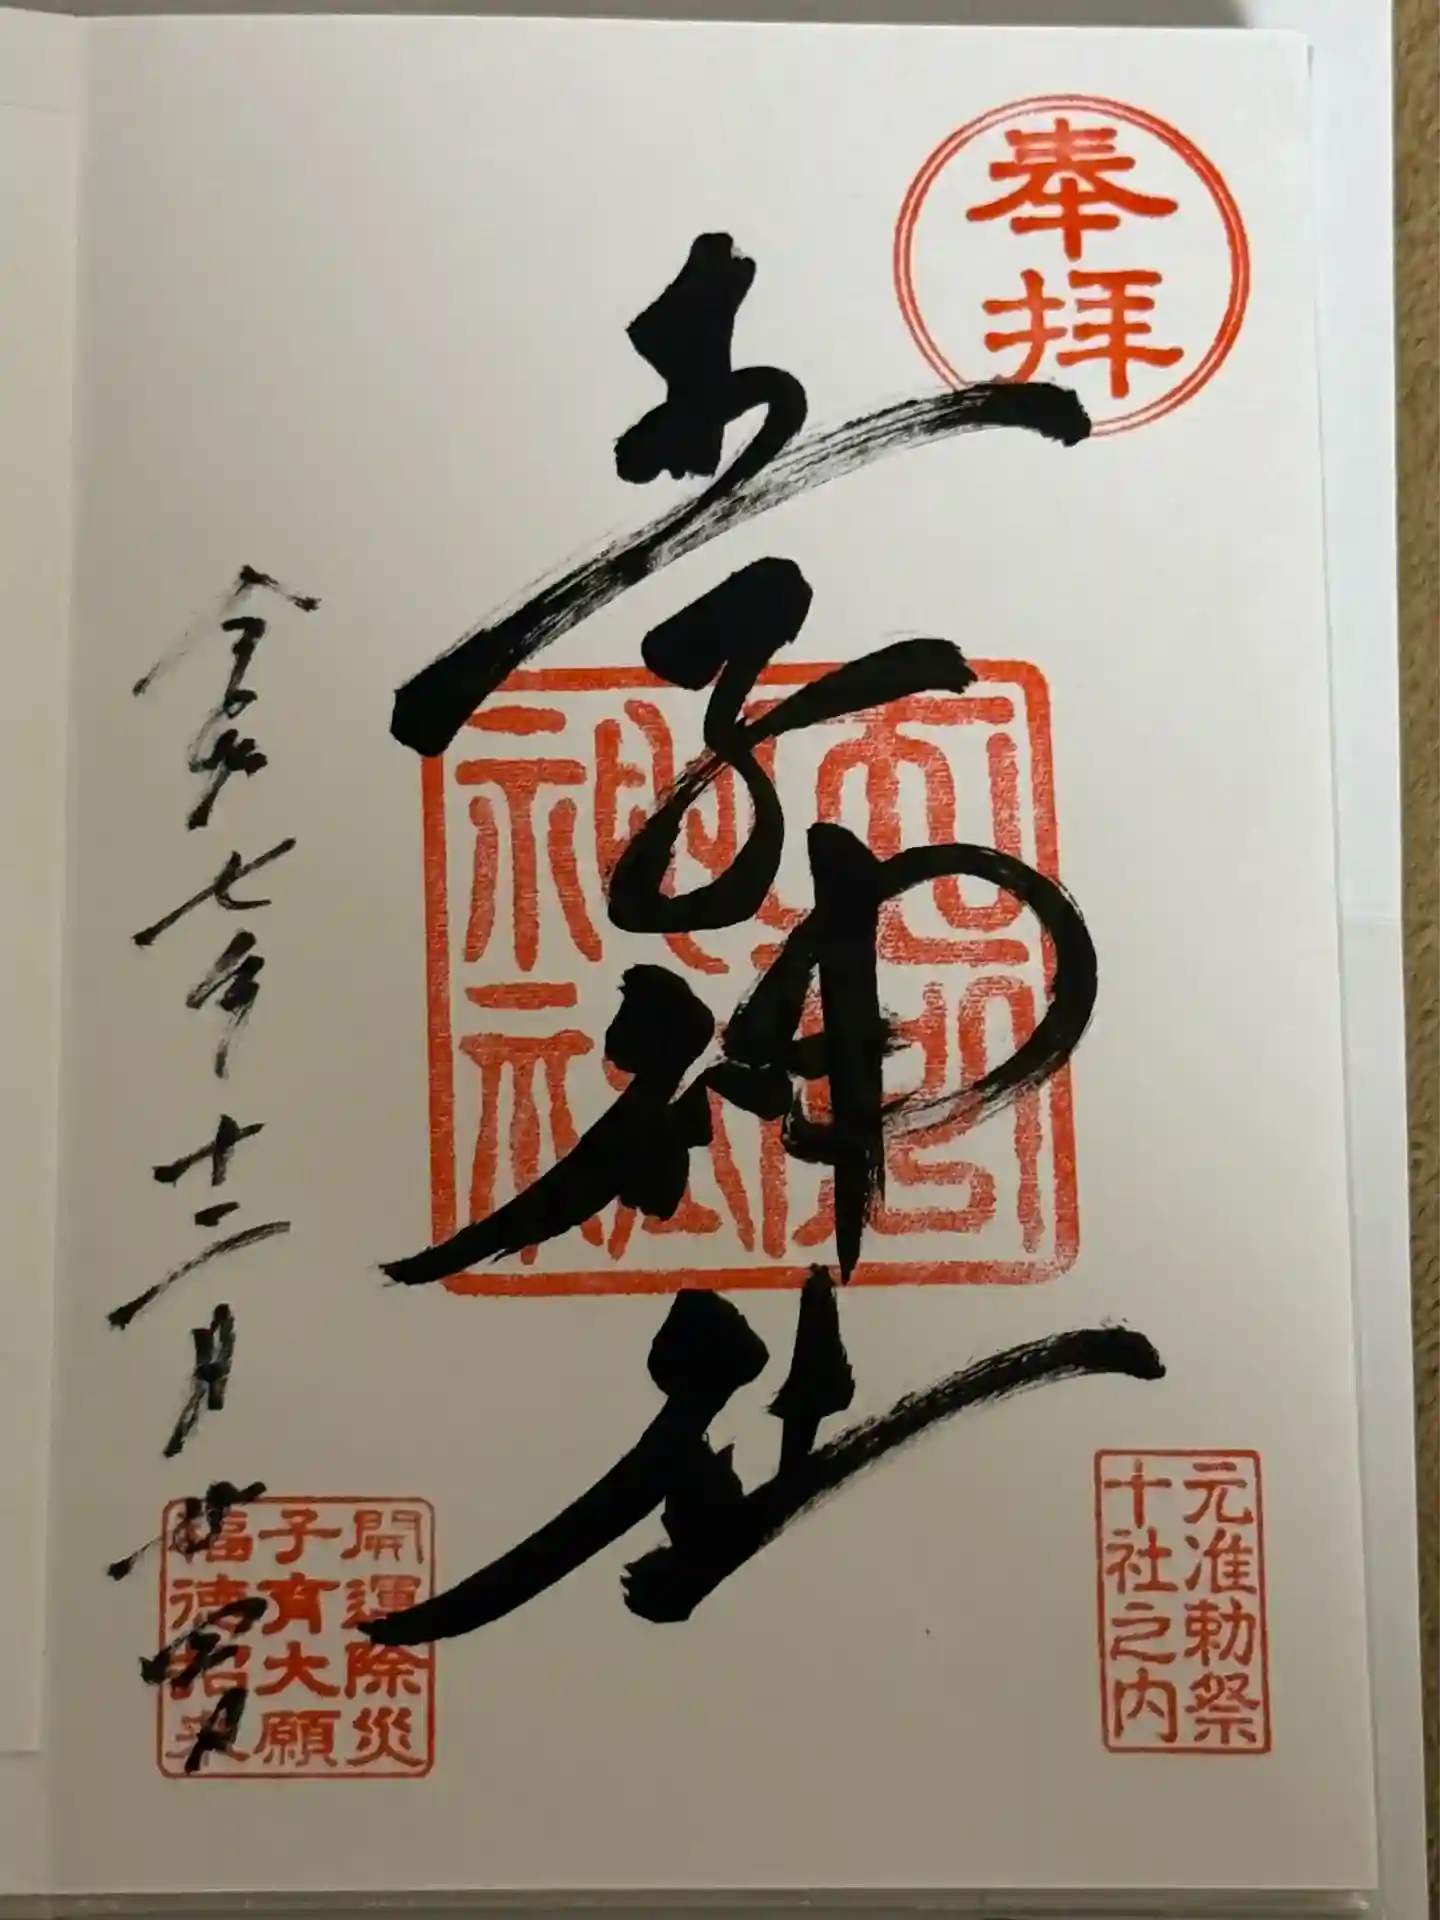 奉拝
王子神社
元准勅祭
十社之内
令和七年十二月廿四日
開運除災
子育大願
福徳招来